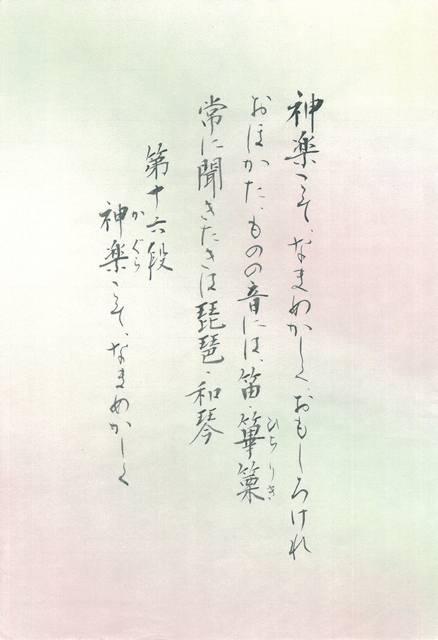 神楽こそ、なまめかしく、おもしろけれ
おほかた、ものの音には、笛・篳篥
ひちりき
常に聞きたきは琵琶・和琴
第十六段
神楽こそ、なまめかしく
かぐら